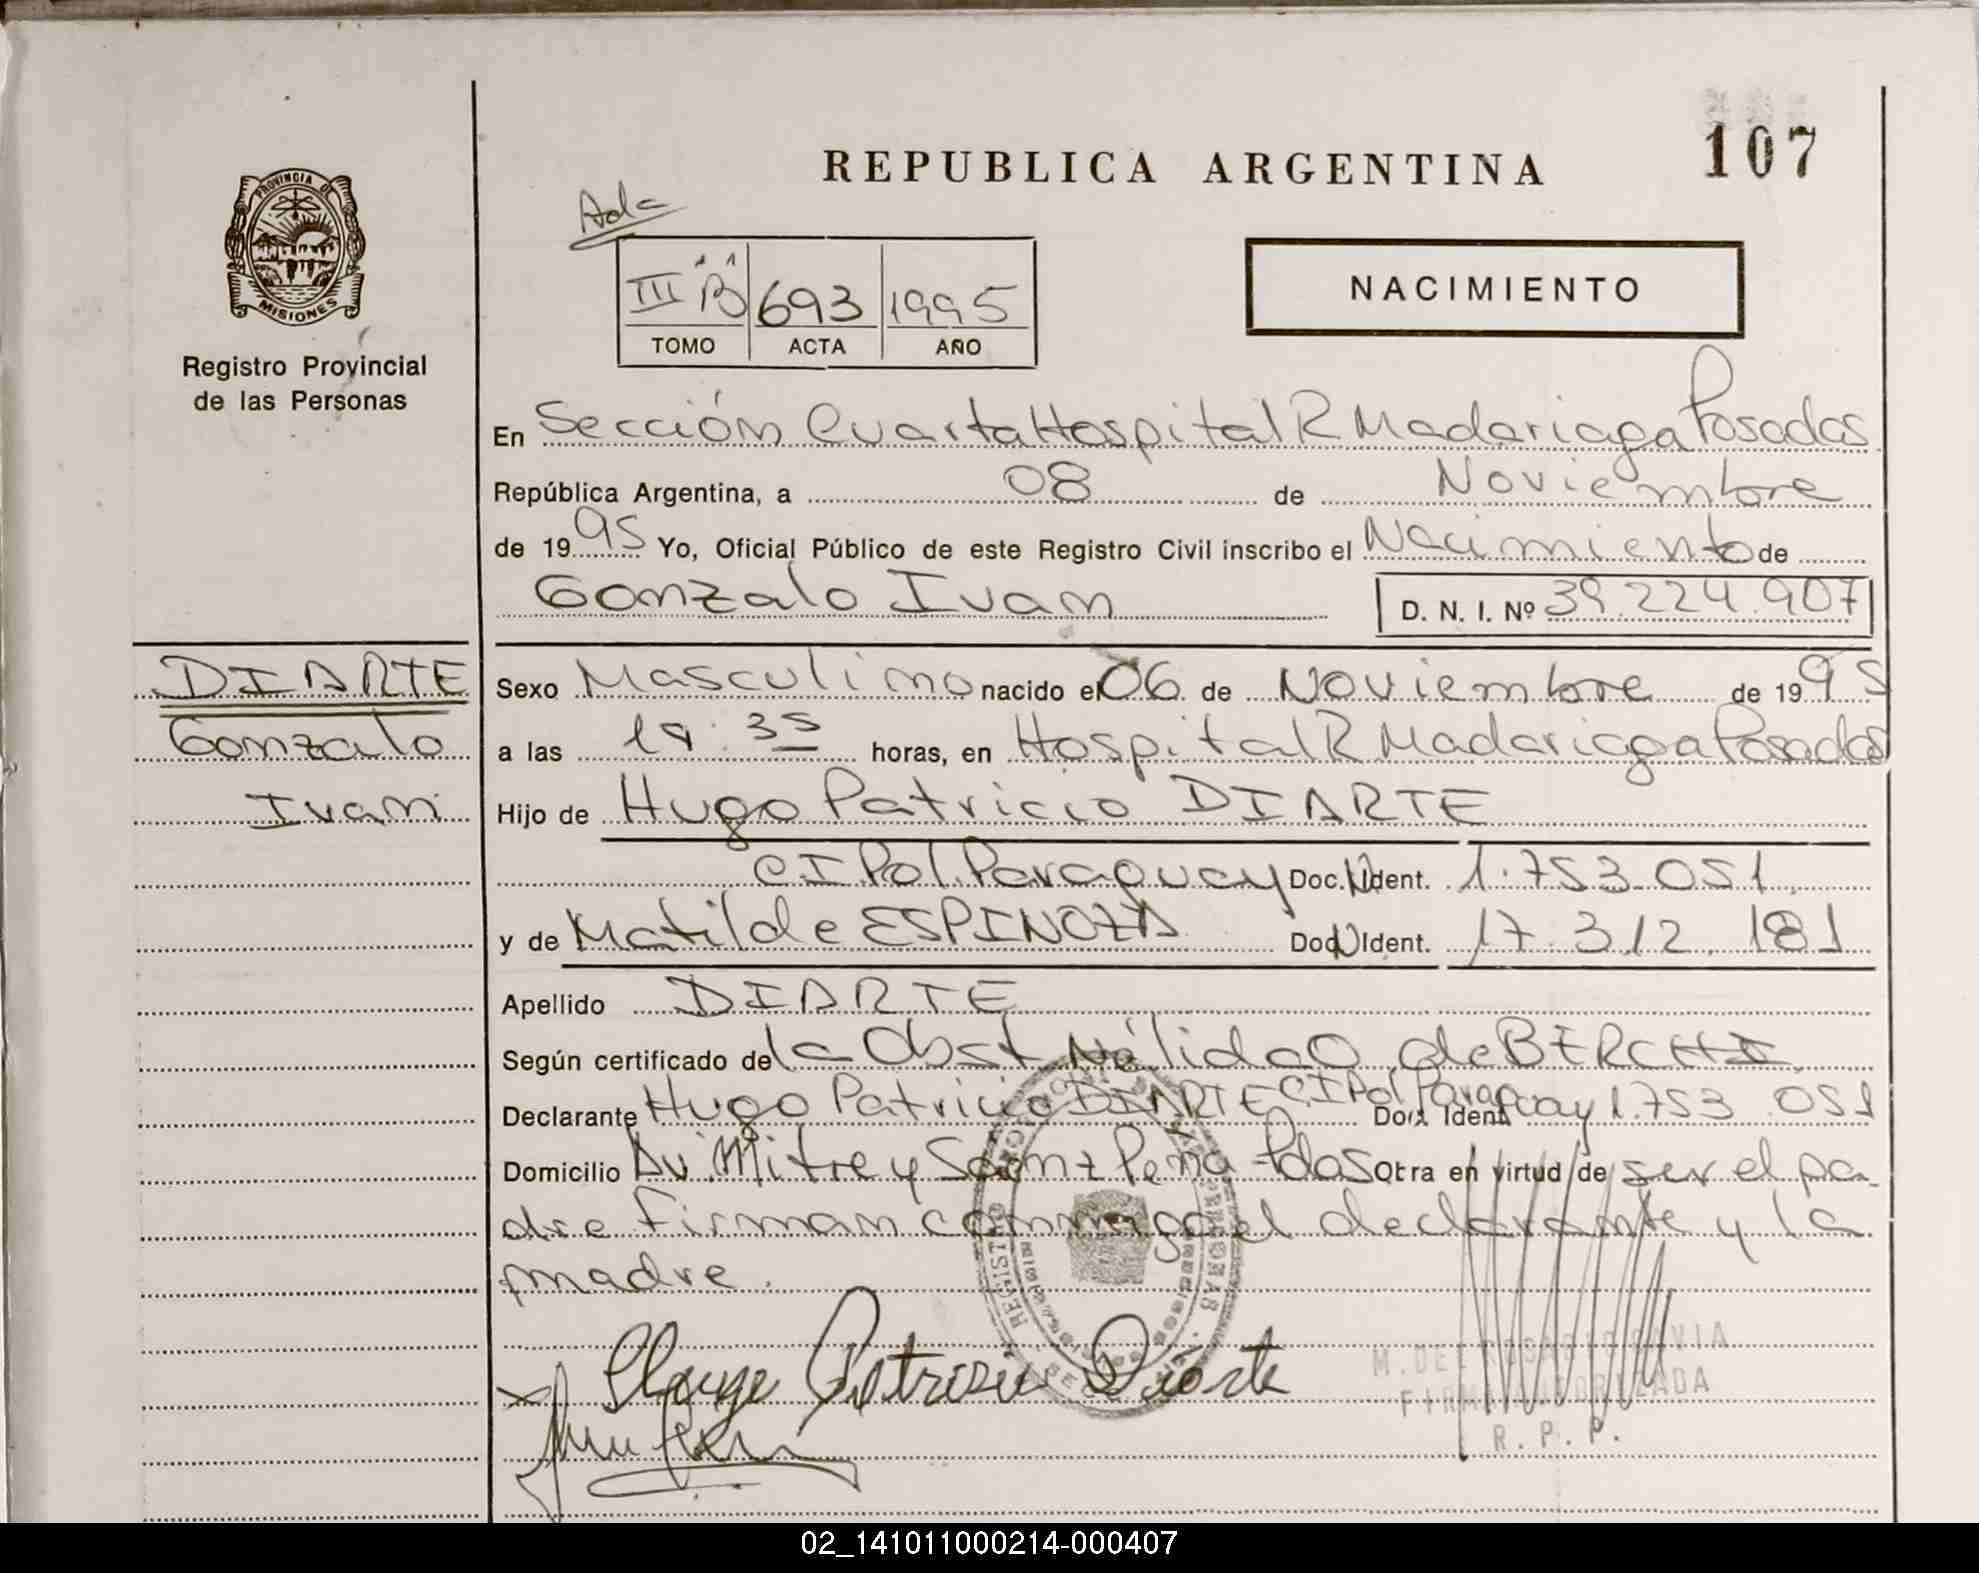 107
REPUBLICA ARGENTINA
PROVINCIA DE
MISIONES
Registro Provincial
de las Personas
Ada
III "B" 693 1995
TOMO ACTA AÑO
NACIMIENTO
En Sección Cuarta Hospital R Madariaga Posadas
República Argentina, a 08 de Noviembre
de 1995 Yo, Oficial Público de este Registro Civil inscribo el Nacimiento de
Gonzalo Ivan D. N. I. Nº 39.224.907
DIARTE
Gonzalo
Ivan
Sexo Masculino nacido el 06 de Noviembre de 1995
a las 19:35 horas, en Hospital R Madariaga Posadas
Hijo de Hugo Patricio DIARTE
CI.Pol.Paraguay Doc. Ident. 1.753.051
y de Matilde ESPINOZA Doc Ident. 17.312.181
Apellido DIARTE
Según certificado de la Obst Nélida O de BERCHI
Declarante Hugo Patricio DIARTE CI Pol Paraguay Doc. Ident 1.753.051
Domicilio Av. Mitre y Saenz Peña - Pdas Obra en virtud de ser el pa-
dre firman conmigo el declarante y la
madre.
Patricio Diarte
M. DEL ROSARIO
FIRMA AUTORIZADA
R. P. P.
02_141011000214-000407